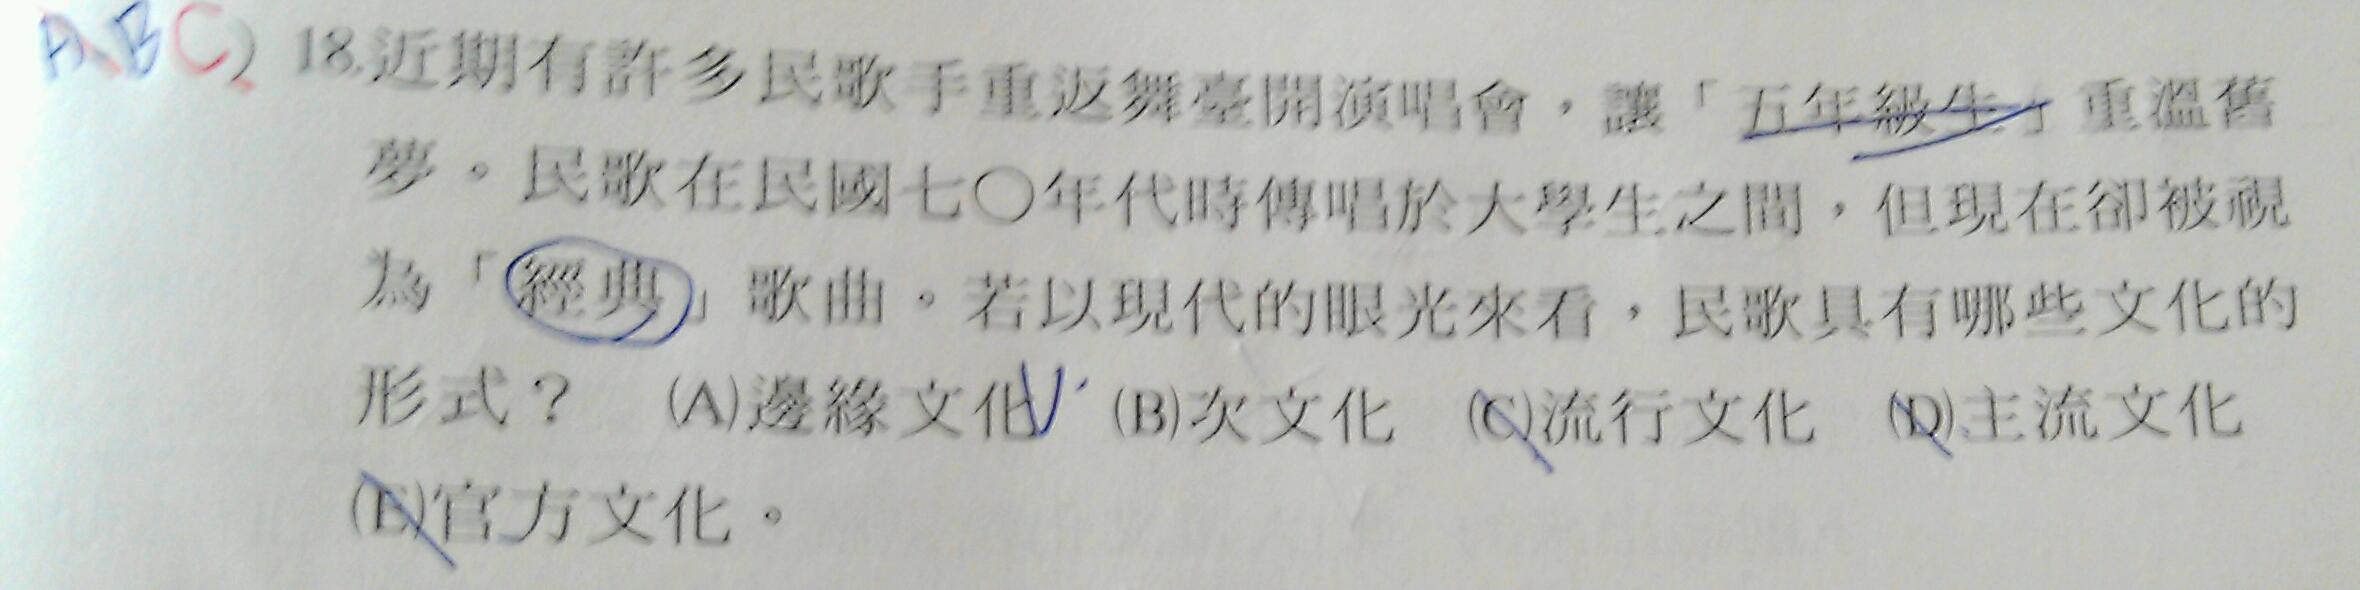 ABC) 18.近期有許多民歌手重返舞臺開演唱會，讓「五年級生」重溫舊
夢。民歌在民國七〇年代時傳唱於大學生之間，但現在卻被視
為「經典」歌曲。若以現代的眼光來看，民歌具有哪些文化的
形式？ (A)邊緣文化 (B)次文化 (C)流行文化 (D)主流文化
(E)官方文化。